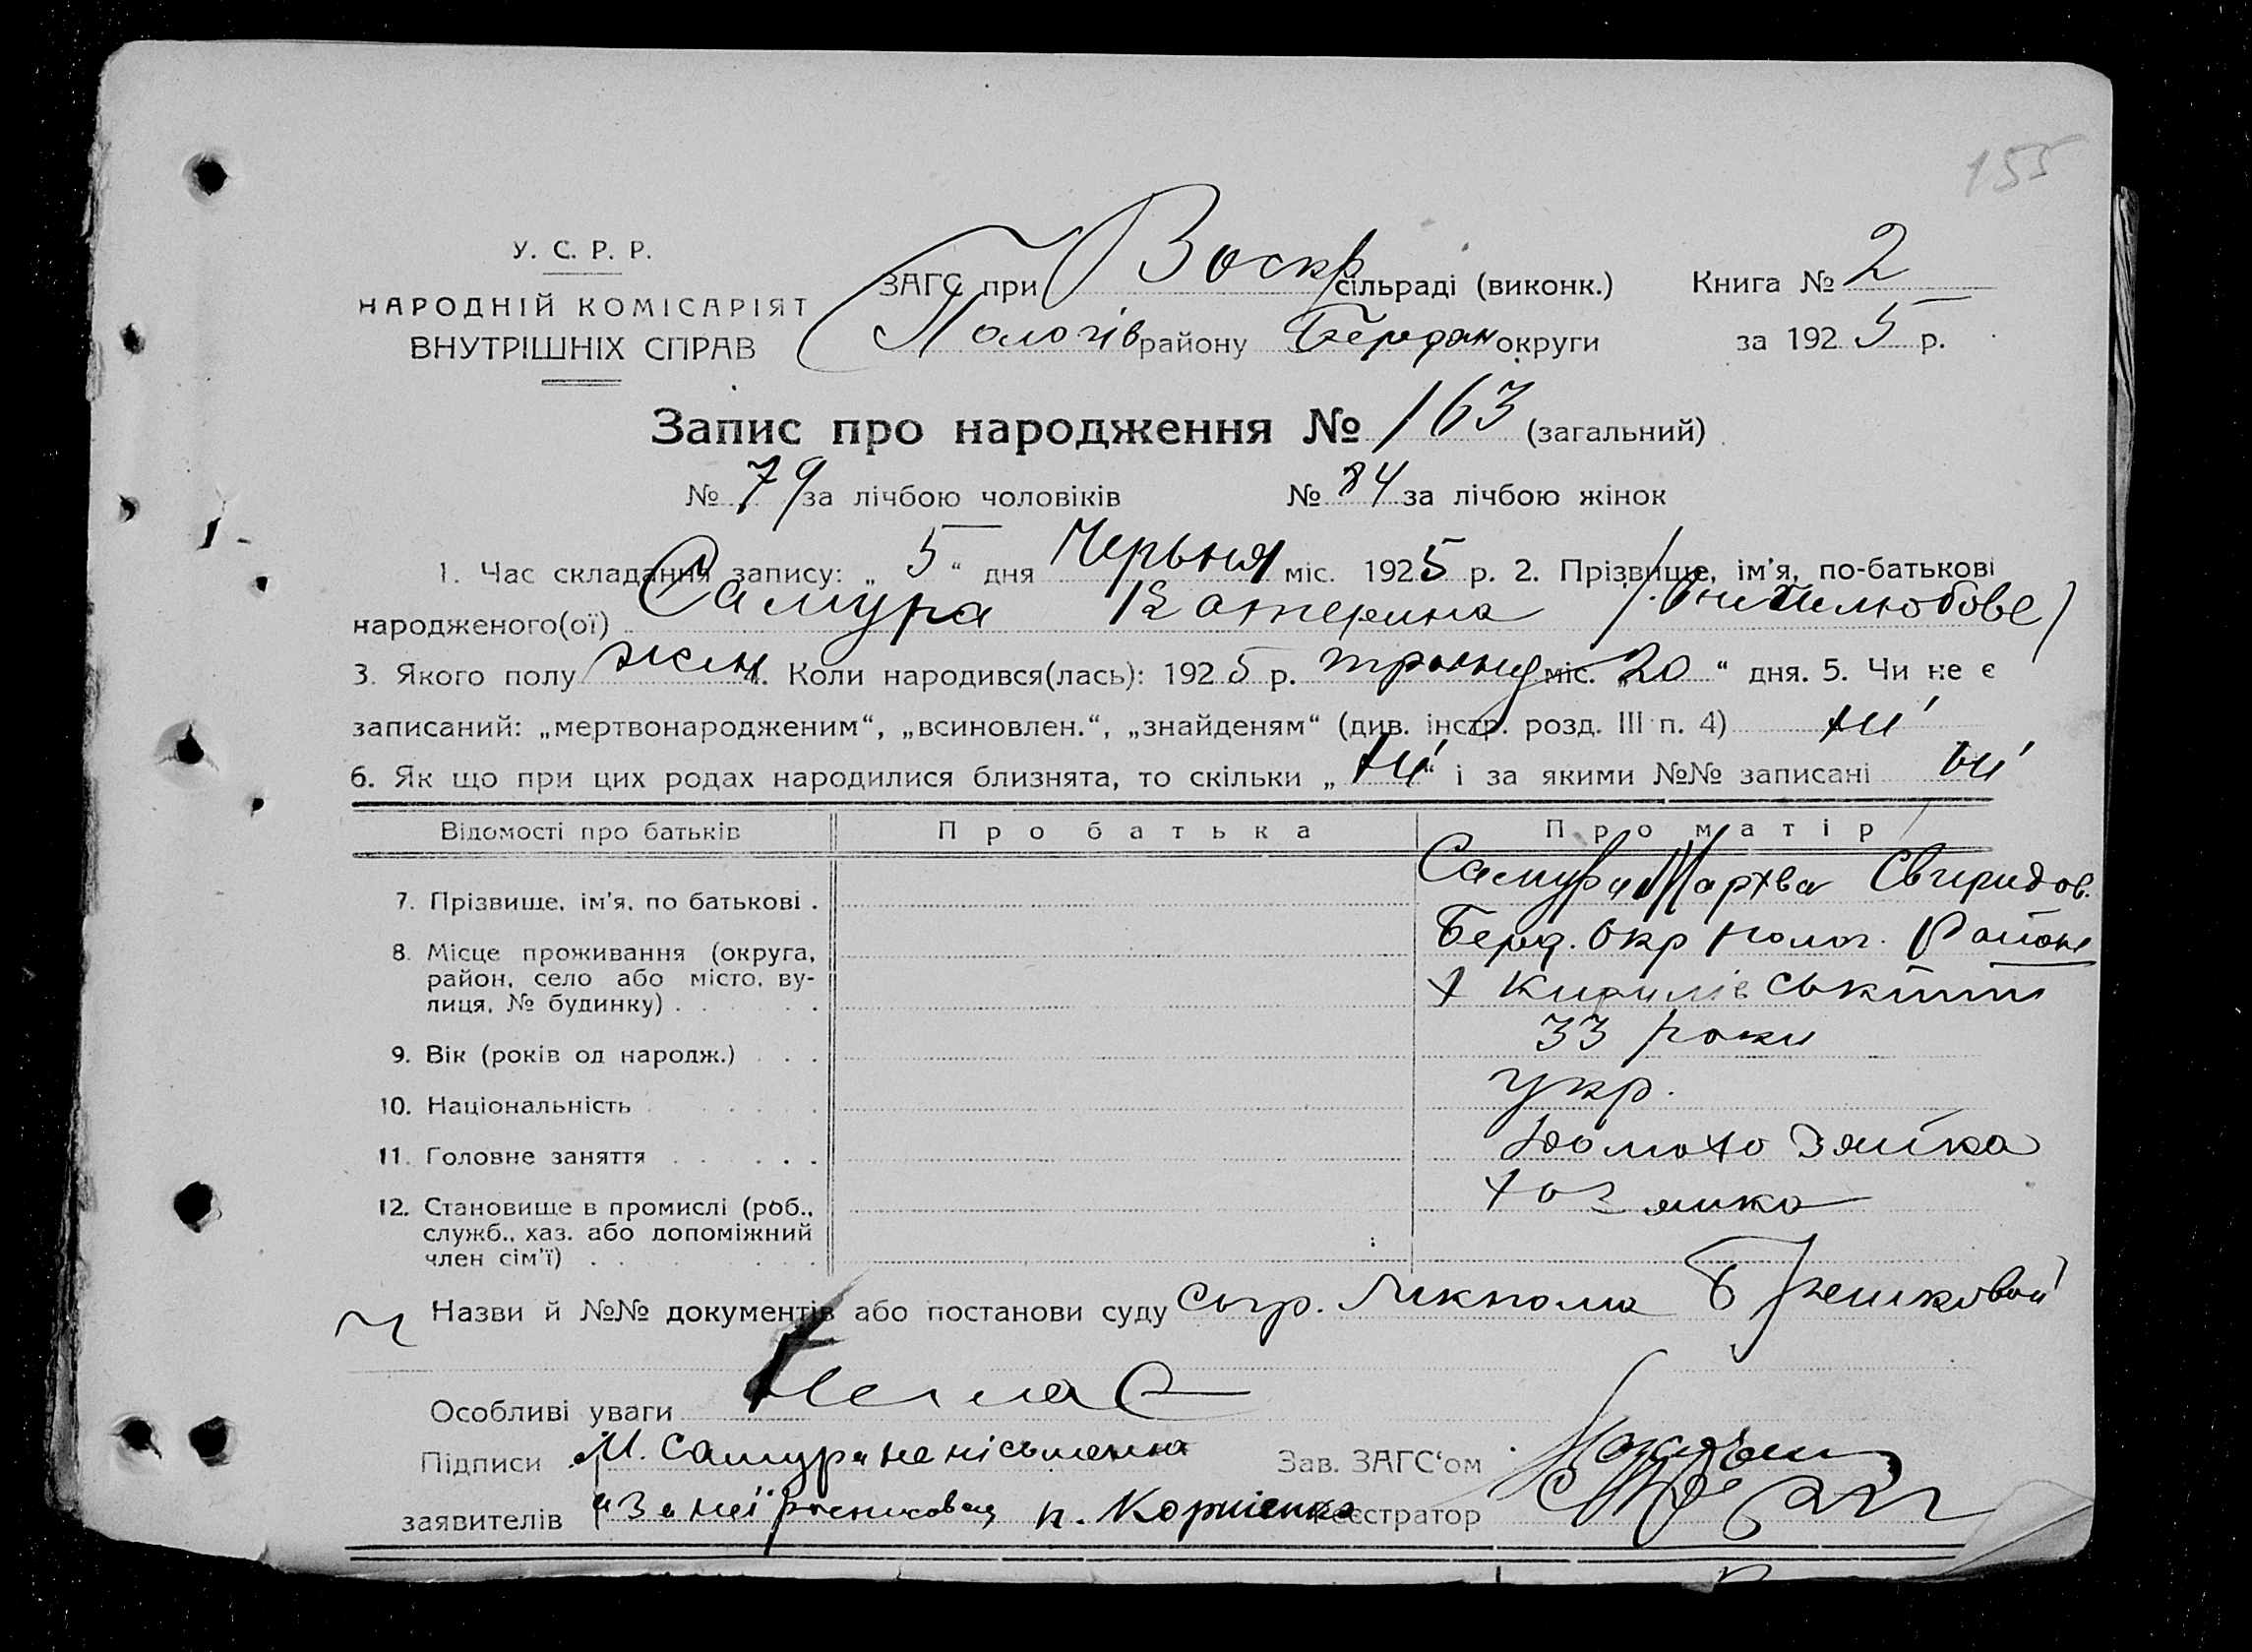 155
У. С. Р. Р.
НАРОДНІЙ КОМІСАРІЯТ
ВНУТРІШНІХ СПРАВ
ЗАГС при Воскр сільраді (виконк.) Книга № 2
Пологів району Бердян округи за 1925 р.
Запис про народження № 163 (загальний)
№ 79 за лічбою чоловіків № 84 за лічбою жінок
1. Час складання запису: „5“ дня Черьвня міс. 1925 р. 2. Прізвище, ім'я, по-батькові
народженого(ої) Самура Катерина
3. Якого полу жін 4. Коли народився(лась): 1925 р. травня міс. „20“ дня. 5. Чи не є
записаний: „мертвонародженим“, „всиновлен.“, „знайденям“ (див. інстр. розд. III п. 4) ні
6. Як що при цих родах народилися близнята, то скільки „ні“ і за якими №№ записані ні
Відомості про батьків Про батька Про матір
7. Прізвище, ім'я, по батькові . Самура Мархва Свиридов.
8. Місце проживання (округа, Берд. Окр Полог. Району
район, село або місто, ву-
лиця, № будинку) . . . . х Кирилівський
9. Вік (років од народж.) . . . 33 роки
10. Національність . . . . . укр.
11. Головне заняття . . . . . Домохозяйка
12. Становище в промислі (роб., хозяйка
служб., хаз. або допоміжний
член сім'ї) . . . . . .
Назви й №№ документів або постанови суду
Особливі уваги Немає
Підписи М. Самура неписьменна Зав. ЗАГС'ом
заявителів За неї росписовця Корнієнко Реєстратор